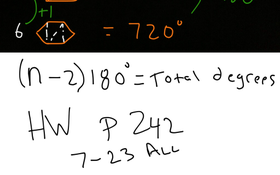 +1
6 = 720°
(n-2)180° = Total degrees
HW P 242
7-23 ALL